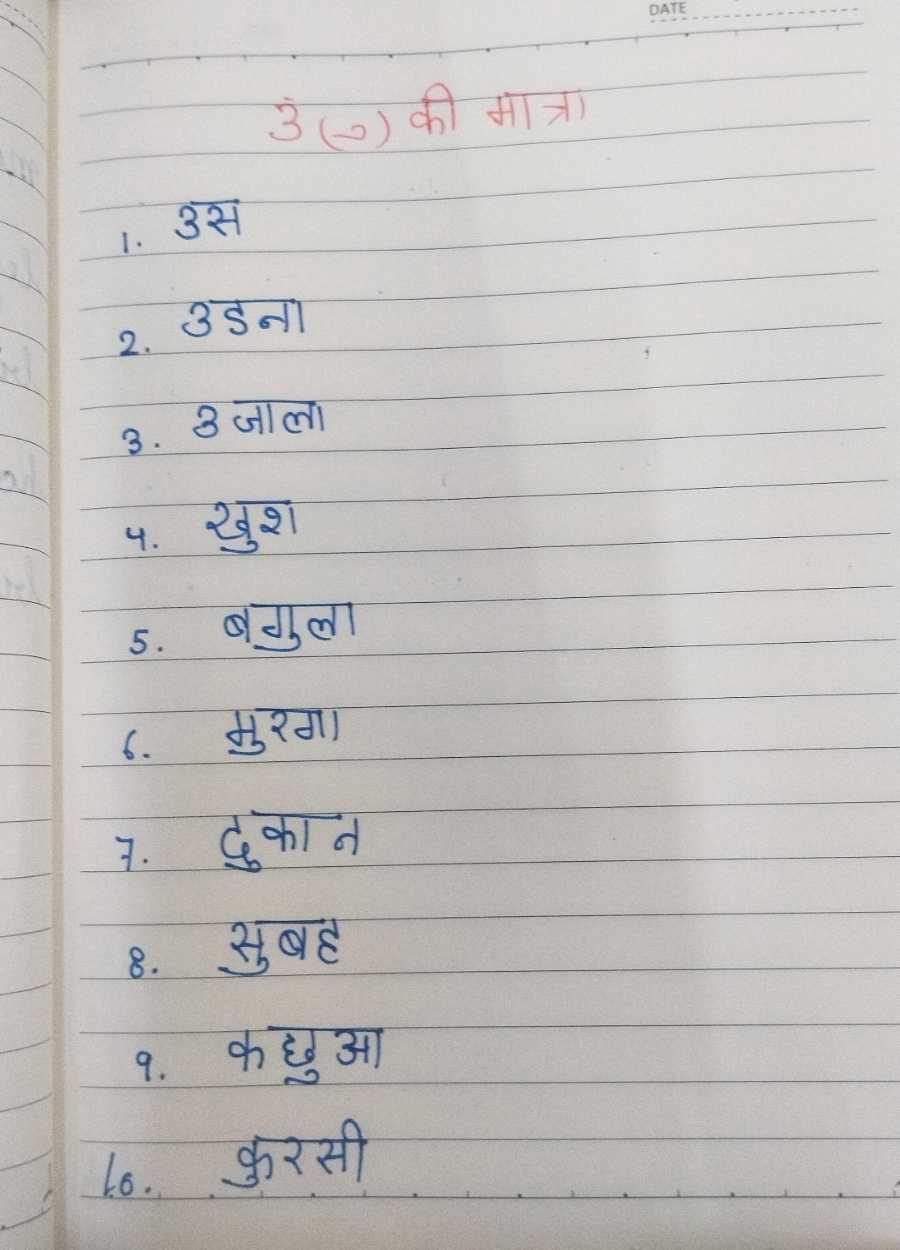 DATE
उ (ु) की मात्रा
1. उस
2. उडना
3. उजाला
4. खुश
5. बगुला
6. मुरगा
7. दुकान
8. सुबह
9. कछुआ
10. कुरसी